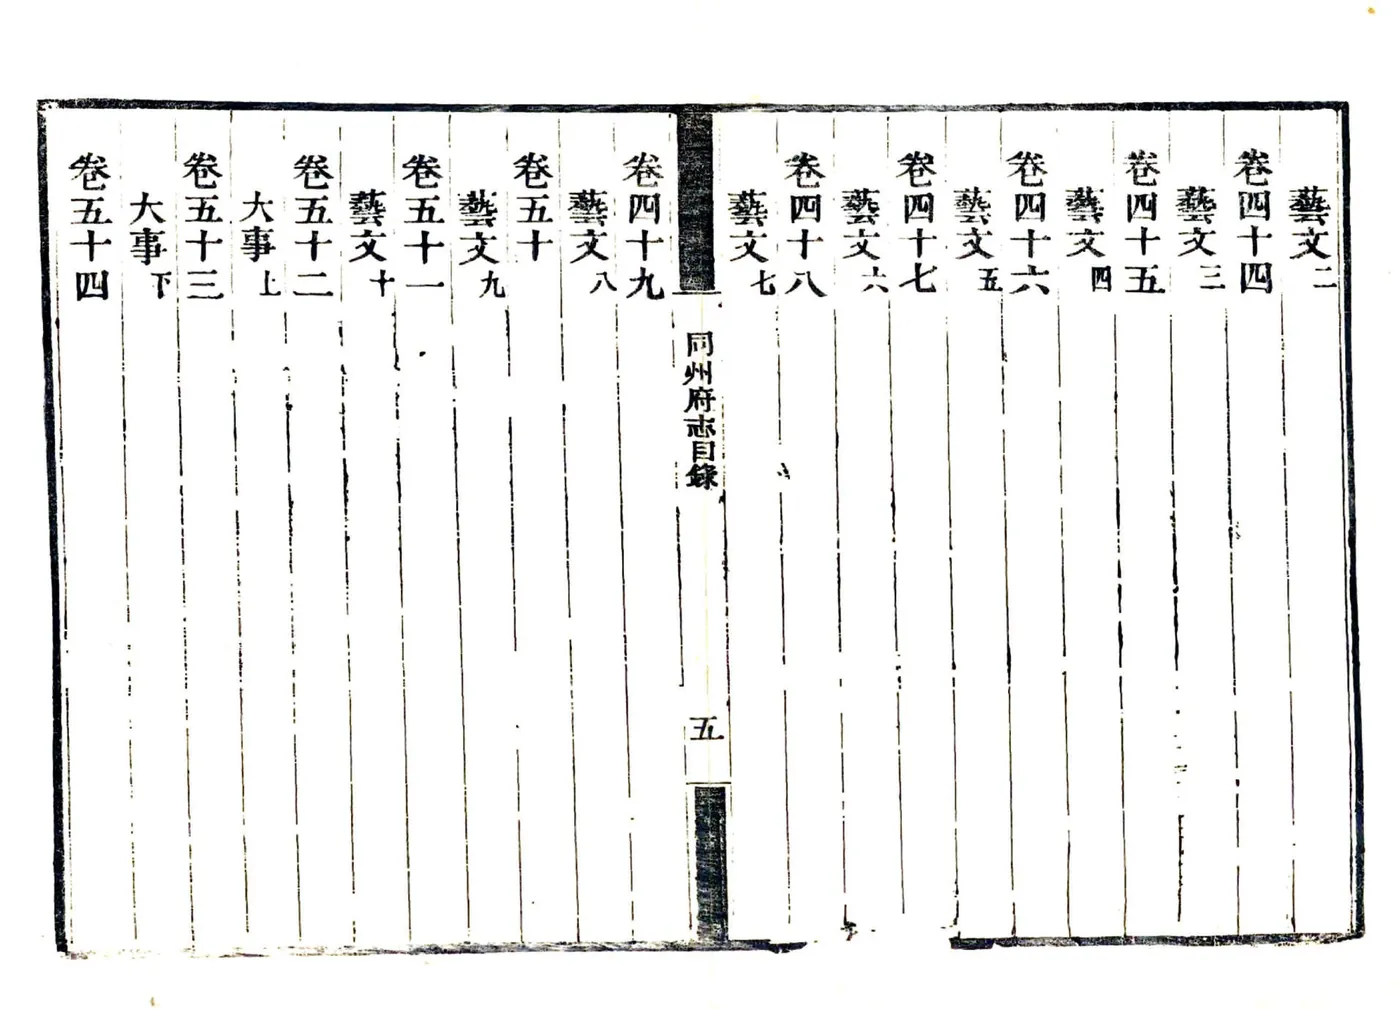 藝文二
卷四十四
藝文三
卷四十五
藝文四
卷四十六
藝文五
卷四十七
藝文六
卷四十八
藝文七
同州府志目錄
五
卷四十九
藝文八
卷五十
藝文九
卷五十一
藝文十
卷五十二
大事上
卷五十三
大事下
卷五十四